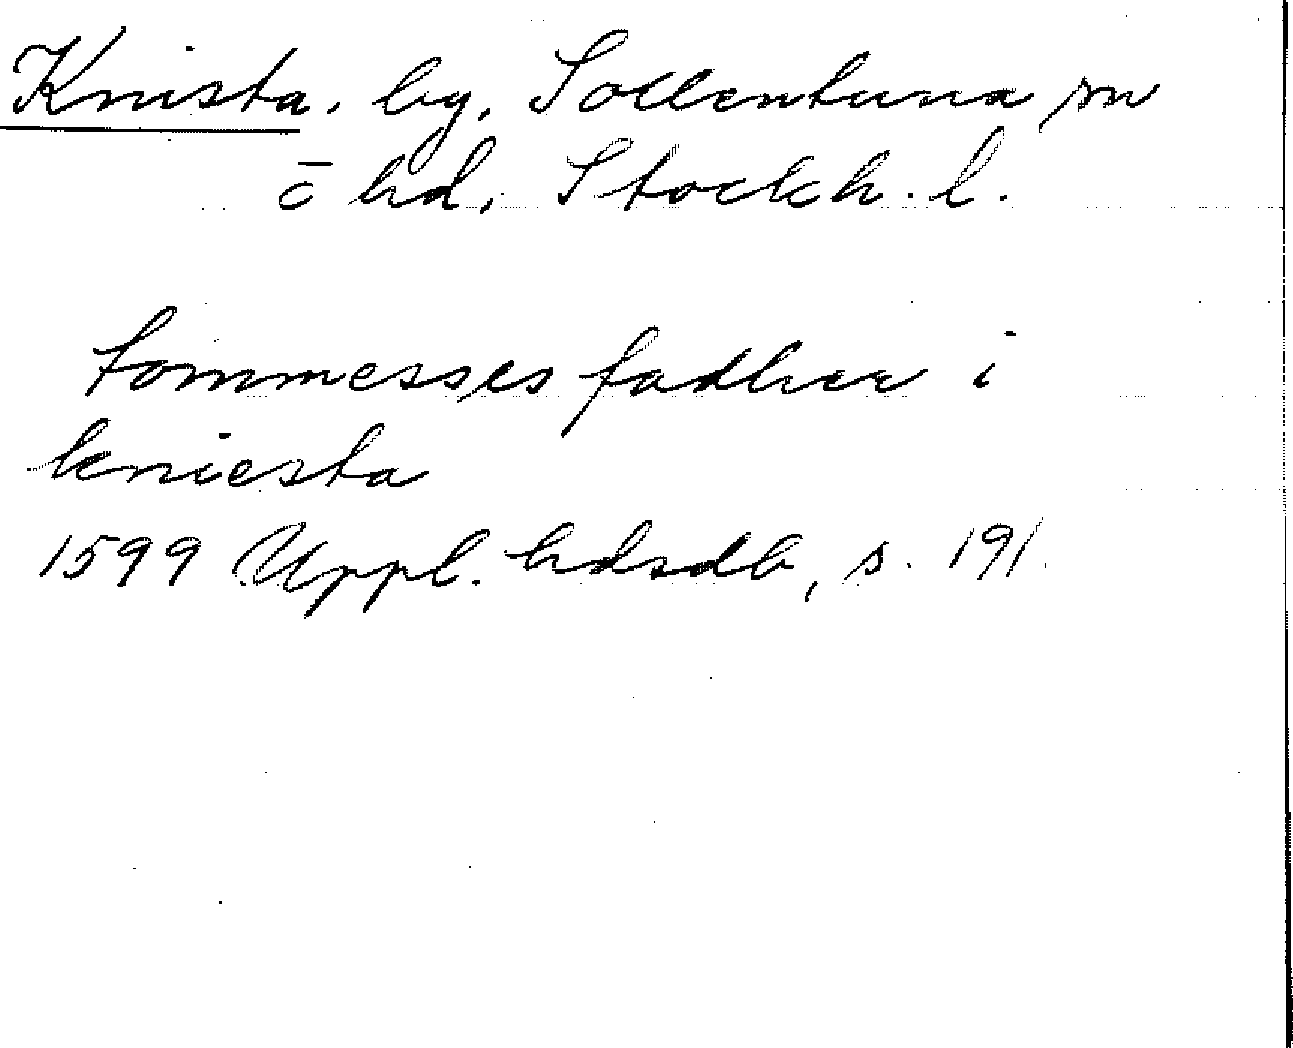 Knista, by, Sollentuna sn
ö hd, Stockh. l.
tommesses fadher i
kniesta
1599 Uppl. hdsdb, s. 191.